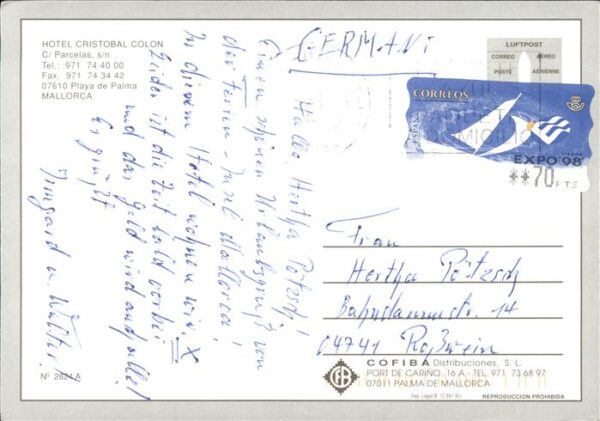 HOTEL CRISTOBAL COLON
C/ Parcelas, s/n
Tel.: 971 74 40 00
Fax. 971 74 34 42
07610 Playa de Palma
MALLORCA
GERMANi
LUFTPOST
CORREO AÉREO
POSTE AÉRIENNE
CORREOS
ESPAÑA
EXPO'98
**70 PTS
Hallo, Hertha Pötzsch!
Einen schönen Urlaubsgruß von
der Ferien-Insel Mallorca!
In diesem Hotel wohnen wir. X
Leider ist die Zeit bald vorbei
und das Geld wird auch alle!
Es grüßt
Irmgard u. Walter
Frau
Hertha Pötzsch
Bahndammstr. 14
04741 Roßwein
COFIBA Distribuciones, S. L.
PORT DE CARIÑO, 16 A.- TEL. 971 73 68 97
07011 PALMA DE MALLORCA
Nº 2824 A
REPRODUCCION PROHIBIDA